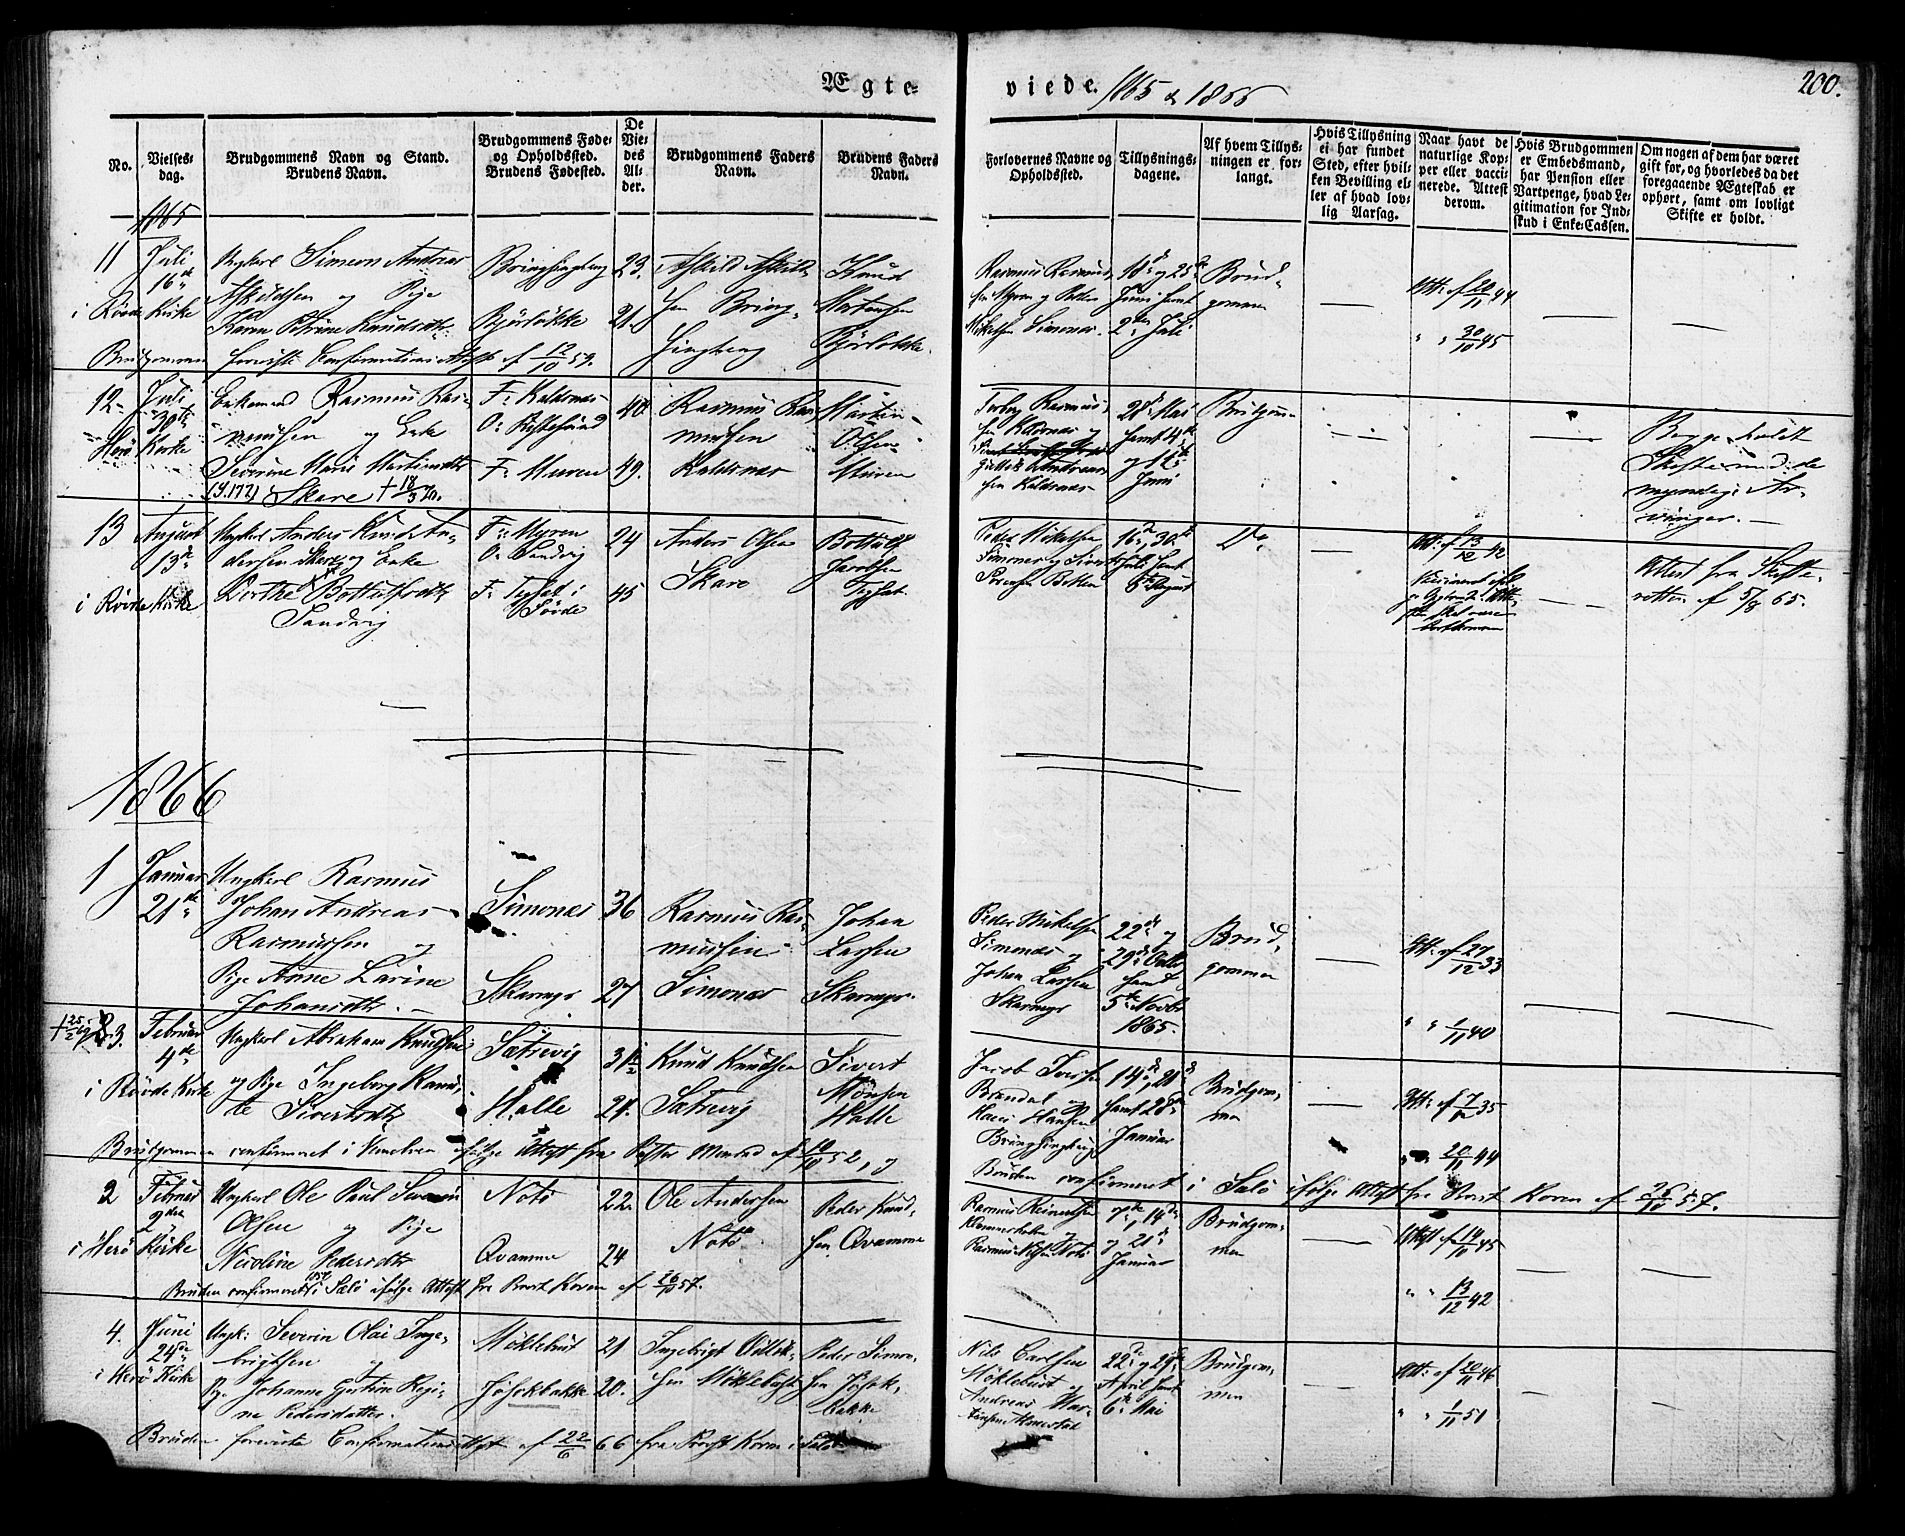 Ægte-
viede. 1865 & 1866
200.
No.
Vielses-
dag.
Brudgommens Navn og Stand.
Brudens Navn.
Brudgommens Føde-
og Opholdssted.
Brudens Fødested.
De
Vie-
des
Al-
der.
Brudgommens Faders
Navn.
Brudens Faders
Navn.
Forlovernes Navne og
Opholdssted.
Tillysnings-
dagene.
Af hvem Tillys-
ningen er for-
langt.
Hvis Tillysning
ei har fundet
Sted, efter hvil-
ken Bevilling el-
ler af hvad lov-
lig Aarsag.
Naar havt de
naturlige Kop-
per eller vacci-
nerede. Attest
derom.
Hvis Brudgommen
er Embedsmand,
har Pension eller
Vartpenge, hvad Le-
gitimation for Ind-
skud i Enke-Cassen.
Om nogen af dem har været
gift før, og hvorledes da det
foregaaende Ægteskab er
ophørt, samt om lovligt
Skifte er holdt.
1865
11
Juli
16de
i Røvde Kirke
Ungkarl Simeon Andreas
Askildsen og Pige
Karen Petrine Knudsdtr
Bringsingberg
Bjørløkke
23.
21.
Askild Askild-
sen Bring-
singberg
Knud
Martinsen
Bjørløkke.
Rasmus Rasmus-
sen Myren og Peder
Mikelsen Simones.
18de og 25de
Juni samt
2den Juli
Brud-
gommen
Att: af 20/11 44
" " 30/10 45
Brudgommen foreviste Confirmations Attest af 12/10 59.
12
Juli
30te
Herø Kirke
Enkemand Rasmus Ras-
mussen og Enke
Severine Marie Martinsdtr
Skare
F: Kaldsnes
F: Muren
40.
49.
Rasmus Ras-
mussen
Kaldsnæs
Martin
Olsen
Muren
Rasmus-
sen Kaldsnæs og
Andreas-
sen Kaldsnæs
28de Mai
samt 4de
og 11te
Juni
Brudgom-
Begge holdt
Skifte med de
myndige Ar-
vinger.
13
August
13de
i Røvde Kirke
Ungkarl Anders Knud An-
dersen Skare og Enke
Dorthe Bottolfsdtr
Sandvig
F: Myren
O: Sandvig
F: Tegset i
Søvde
24
45
Anders Olsen
Skare
Bottolf
Jacobsen
Tegset.
Peder Mikelsen
Simones og Sivert
Petersen
16de, 30te
Juli samt
6te August
Do
Att: af 13/12 42
Attest fra Skifte-
retten af 5/8 65.
1866
1
Januar
21de
Ungkarl Rasmus
Johan Andreas
Rasmussen og
Pige Anne Larine
Johansdtr.
Simones
Skarmyr
36
27
Rasmus Ras-
mussen
Simones
Johan
Larsen
Skarmyr.
Peder Mikelsen
Simones og
Johan Larsen
Skarmyr
22de og
29de Octbr
samt
5te Novbr
1865.
Brud-
gommen
Att: af 27/12 33
" " 1/11 40
3.
Februar
4de
i Røvde Kirke
Ungkarl Abraham Knudsen
og Pige Ingeborg Kanu-
te Sivertsdtr
Sætrevig
Halle
31½
21.
Knud Knudsen
Sætrevig
Sivert
Mønsen
Halle
Jacob Iversen
Brandal og
Hans Hansen
Bringsingberg
14de, 21de
samt 28de
Januar
Brudgom-
men
Att: af 7/12 35
" " 20/11 44
Brudgommen confirmeret i Vanelven ifølge Attest fra Pastor af 10/10 52, og
Bruden confirmeret i Sølø ifølge Attest fra Provst Koren af 26/10 57.
2
Februar
2den
i Herø Kirke
Ungkarl Ole Paul Severin
Olsen og Pige
Nicoline Pedersdtr
Notø
Qvamme
22.
24
Ole Andersen
Notø
Peder Knud-
sen Qvamme
Rasmus
og
Rasmus Olsen Notø
7de, 14de
og 21de
Januar
Brudgom-
men
Attest af 14/11 45
" " 13/12 42
Bruden confirmeret i Sølø ifølge Attest fra Provst Koren af 26/10 57.
4.
Juni
24de
i Herø Kirke
Ungk: Severin Olai Inge-
brigtsen og
Pige Johanne Gurine Regi-
ne Pedersdatter.
Møklebust
Jøsokbakke
21
20.
Ingebrigt
sen Møklebust
Peder Simon-
sen Jøsok-
bakke
Nils Carlsen
Møklebust og
Andreas Mar-
tinsen
22de og 29de
April samt
6te Mai
Brudgom-
men
Att: af 20/11 46
" " 1/11 51
Bruden foreviste Confirmations Attest af 22/6 66 fra Provst Koren i Sølø